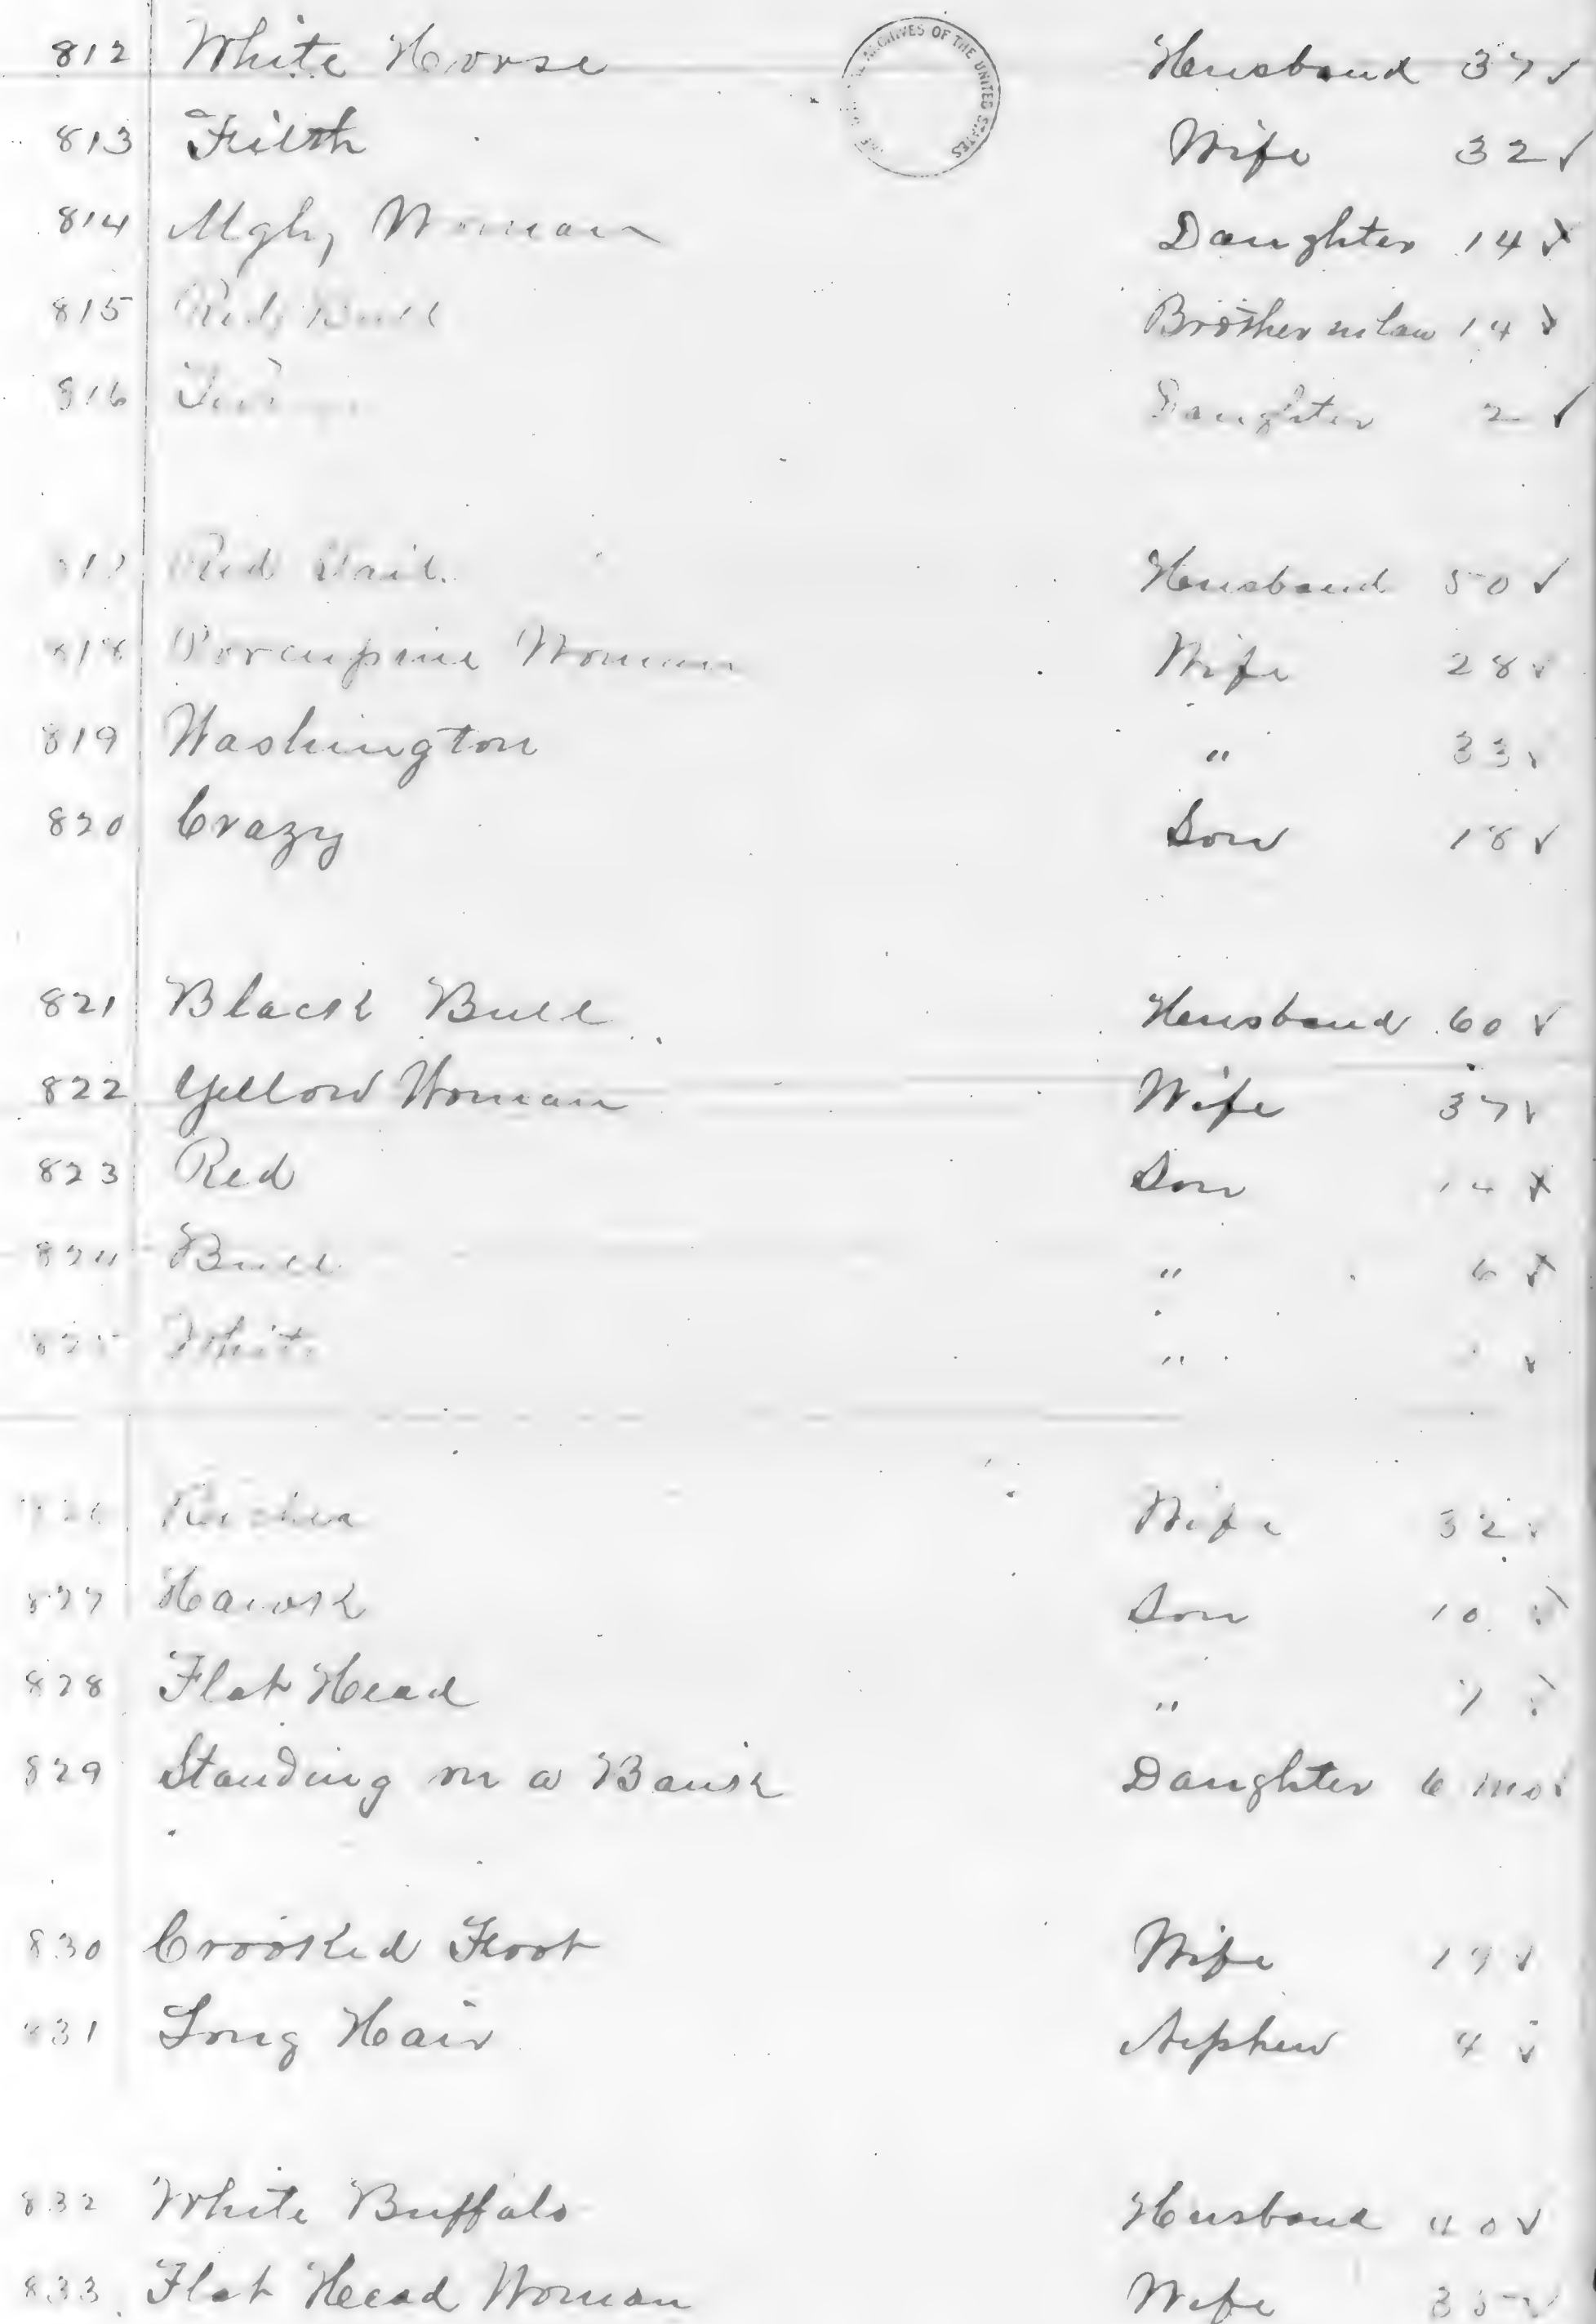 812 White Horse Husband 37 ✓
ARCHIVES OF THE UNITED STATES
813 Filth Wife 32 ✓
814 Ugly Woman Daughter 14 ✓
815 Red Bull Brother in law 14
816 Daughter 2 ✓
817 Red Husband 50 ✓
818 Porcupine Woman Wife 28 ✓
819 Washington " 33 ✓
820 Crazy Son 18 ✓
821 Black Bull Husband 60 ✓
822 Yellow Woman Wife 37 ✓
823 Red Son 14
824 Bull " 6
825 White " ✓
826 Wife 32 ✓
827 Hawk Son 10
828 Flat Head " 7
829 Standing on a Bank Daughter 6 mo ✓
830 Crooked Foot Wife ✓
831 Long Hair Nephew 4 ✓
832 White Buffalo Husband 40 ✓
833 Flat Head Woman Wife 35 ✓